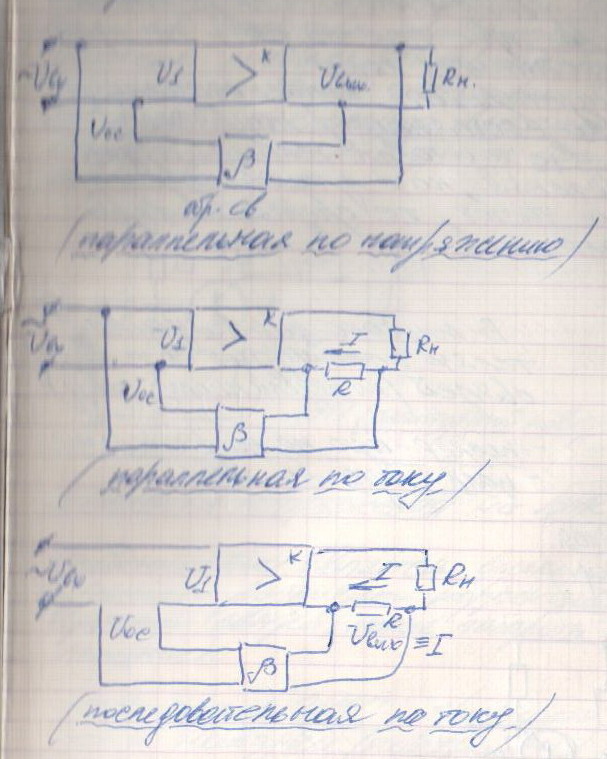 ~Uа U1 > K Uвых. Rн.
Uос β
обр. св
(параллельная по напряжению)
~Uа U1 > K I Rн
R
Uос β
(параллельная по току)
~Uа U1 > K I Rн
R
Uос Uвых ≡ I
β
(последовательная по току.)